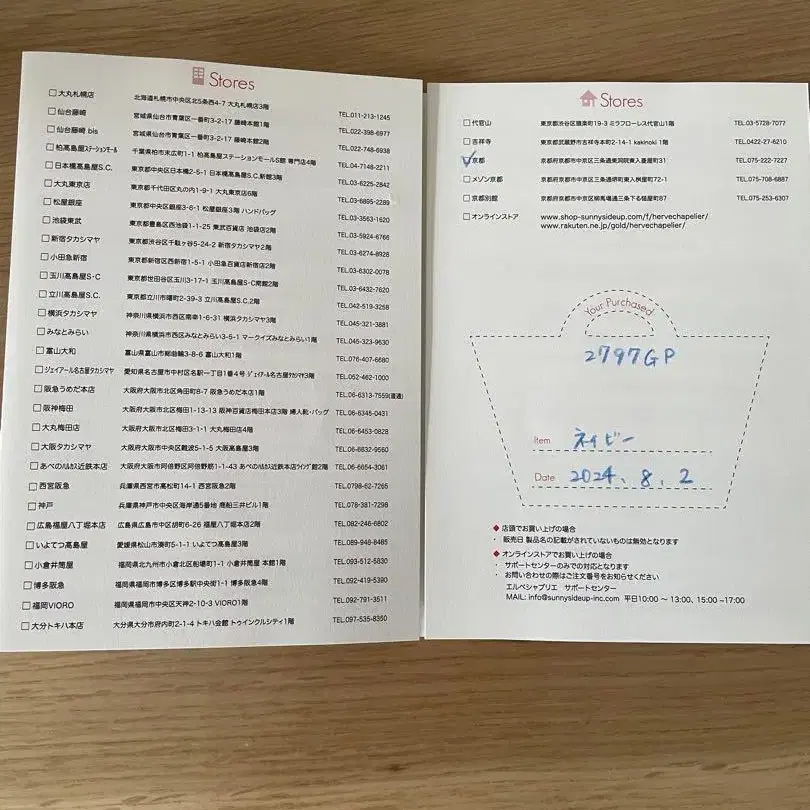 Stores
大丸札幌店 北海道札幌市中央区北5条西4-7 大丸札幌店3階 TEL.011-213-1245
仙台藤崎 宮城県仙台市青葉区一番町3-2-17 藤崎本館1階 TEL.022-398-6977
仙台藤崎 bis 宮城県仙台市青葉区一番町3-2-17 藤崎本館2階 TEL.022-748-6938
柏高島屋ステーションモール 千葉県柏市末広町1-1 柏高島屋ステーションモールS館 専門店4階 TEL.04-7148-2211
日本橋高島屋S.C. 東京都中央区日本橋2-5-1 日本橋高島屋S.C.新館3階 TEL.03-6225-2842
大丸東京店 東京都千代田区丸の内1-9-1 大丸東京店6階 TEL.03-6895-2289
松屋銀座 東京都中央区銀座3-6-1 松屋銀座3階 ハンドバッグ TEL.03-3563-1620
池袋東武 東京都豊島区西池袋1-1-25 東武百貨店 池袋店2階 TEL.03-5924-6766
新宿タカシマヤ 東京都渋谷区千駄ヶ谷5-24-2 新宿タカシマヤ2階 TEL.03-6274-8928
小田急新宿 東京都新宿区西新宿1-5-1 小田急百貨店新宿店2階 TEL.03-6302-0078
玉川高島屋S・C 東京都世田谷区玉川3-17-1 玉川高島屋S・C南館2階 TEL.03-6432-7620
立川高島屋S.C. 東京都立川市曙町2-39-3 立川高島屋S.C.2階 TEL.042-519-3258
横浜タカシマヤ 神奈川県横浜市西区南幸1-6-31 横浜タカシマヤ3階 TEL.045-321-3881
みなとみらい 神奈川県横浜市西区みなとみらい3-5-1 マークイズみなとみらい1階 TEL.045-323-9630
富山大和 富山県富山市総曲輪3-8-6 富山大和1階 TEL.076-407-6680
ジェイアール名古屋タカシマヤ 愛知県名古屋市中村区名駅一丁目1番4号 ジェイアール名古屋タカシマヤ3階 TEL.052-462-1000
阪急うめだ本店 大阪府大阪市北区角田町8-7 阪急うめだ本店1階 TEL.06-6313-7559(直通)
阪神梅田 大阪府大阪市北区梅田1-13-13 阪神百貨店梅田本店3階 婦人靴・バッグ TEL.06-6345-0431
大丸梅田店 大阪府大阪市北区梅田3-1-1 大丸梅田店4階 TEL.06-6453-0828
大阪タカシマヤ 大阪府大阪市中央区難波5-1-5 大阪高島屋3階 TEL.06-6632-9560
あべのハルカス近鉄本店 大阪府大阪市阿倍野区阿倍野筋1-1-43 あべのハルカス近鉄本店ウイング館2階 TEL.06-6654-3061
西宮阪急 兵庫県西宮市高松町14-1 西宮阪急2階 TEL.0798-62-7265
神戸 兵庫県神戸市中央区海岸通5番地 商船三井ビル1階 TEL.078-381-7298
広島福屋八丁堀本店 広島県広島市中区胡町6-26 福屋八丁堀本店2階 TEL.082-246-6802
いよてつ髙島屋 愛媛県松山市湊町5-1-1 いよてつ髙島屋3階 TEL.089-948-8485
小倉井筒屋 福岡県北九州市小倉北区船場町1-1 小倉井筒屋 本館1階 TEL.093-512-5830
博多阪急 福岡県福岡市博多区博多駅中央街1-1 博多阪急4階 TEL.092-419-5390
福岡VIORO 福岡県福岡市中央区天神2-10-3 VIORO1階 TEL.092-791-3511
大分トキハ本店 大分県大分市府内町2-1-4 トキハ会館 トゥインクルシティ1階 TEL.097-535-8350
Stores
代官山 東京都渋谷区猿楽町19-3 ミラフローレス代官山1階 TEL.03-5728-7077
吉祥寺 東京都武蔵野市吉祥寺本町2-14-1 kakinoki 1階 TEL.0422-27-6210
京都 京都府京都市中京区三条通東洞院東入菱屋町31 TEL.075-222-7227
メゾン京都 京都府京都市中京区三条通堺町東入桝屋町72-1 TEL.075-708-6887
京都別館 京都府京都市中京区柳馬場通三条下る槌屋町87 TEL.075-253-6307
オンラインストア www.shop-sunnysideup.com/f/hervechapelier/
www.rakuten.ne.jp/gold/hervechapelier/
Your Purchased
2797GP
Item ネイビー
Date 2024、8、2
◆ 店頭でお買い上げの場合
・ 販売日 製品名の記載がされていないものは無効となります
◆ オンラインストアでお買い上げの場合
・ サポートセンターのみでの対応となります
・ お問い合わせの際はご注文番号をお知らせください
エルベシャプリエ サポートセンター
MAIL: info@sunnysideup-inc.com 平日10:00 〜 13:00、15:00 〜17:00